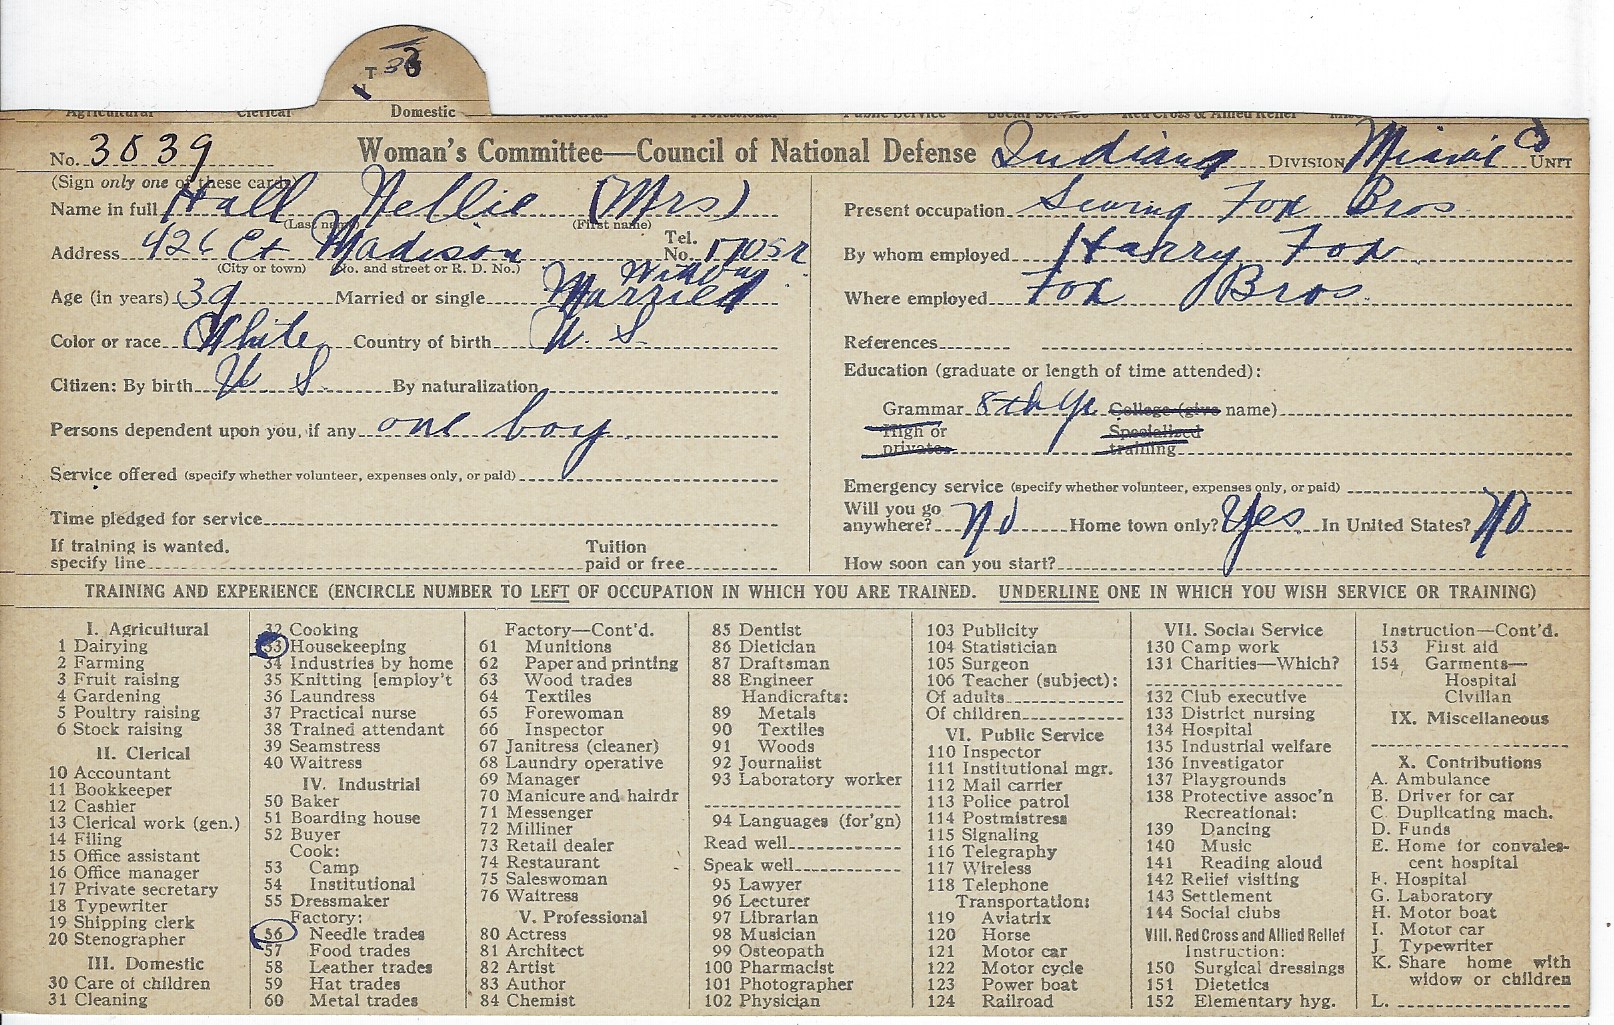 T 3
Agricultural Clerical Domestic Industrial Professional Public Service Social Service Red Cross & Allied Relief
No. 3839 Woman's Committee—Council of National Defense Indiana DIVISION Miami Co UNIT
(Sign only one of these cards)
Name in full Hall Nellie (Mrs)
(Last name) (First name)
Address 426 E Madison Tel. No. 1705
(City or town) (No. and street or R. D. No.)
Widow
Age (in years) 39 Married or single Married
Color or race White Country of birth U. S.
Citizen: By birth U S. By naturalization
Persons dependent upon you, if any one boy.
Service offered (specify whether volunteer, expenses only, or paid)
Time pledged for service
If training is wanted, specify line Tuition paid or free
Present occupation Sewing Fox Bros
By whom employed Harry Fox
Where employed Fox Bros.
References
Education (graduate or length of time attended):
Grammar 8th yr College (give name)
High or private Specialized training
Emergency service (specify whether volunteer, expenses only, or paid)
Will you go anywhere? No Home town only? Yes In United States? No
How soon can you start?
TRAINING AND EXPERIENCE (ENCIRCLE NUMBER TO LEFT OF OCCUPATION IN WHICH YOU ARE TRAINED. UNDERLINE ONE IN WHICH YOU WISH SERVICE OR TRAINING)
I. Agricultural
1 Dairying
2 Farming
3 Fruit raising
4 Gardening
5 Poultry raising
6 Stock raising
II. Clerical
10 Accountant
11 Bookkeeper
12 Cashier
13 Clerical work (gen.)
14 Filing
15 Office assistant
16 Office manager
17 Private secretary
18 Typewriter
19 Shipping clerk
20 Stenographer
III. Domestic
30 Care of children
31 Cleaning
32 Cooking
33 Housekeeping
34 Industries by home
35 Knitting [employ't
36 Laundress
37 Practical nurse
38 Trained attendant
39 Seamstress
40 Waitress
IV. Industrial
50 Baker
51 Boarding house
52 Buyer
Cook:
53 Camp
54 Institutional
55 Dressmaker
Factory:
56 Needle trades
57 Food trades
58 Leather trades
59 Hat trades
60 Metal trades
Factory—Cont'd.
61 Munitions
62 Paper and printing
63 Wood trades
64 Textiles
65 Forewoman
66 Inspector
67 Janitress (cleaner)
68 Laundry operative
69 Manager
70 Manicure and hairdr
71 Messenger
72 Milliner
73 Retail dealer
74 Restaurant
75 Saleswoman
76 Waitress
V. Professional
80 Actress
81 Architect
82 Artist
83 Author
84 Chemist
85 Dentist
86 Dietician
87 Draftsman
88 Engineer
Handicrafts:
89 Metals
90 Textiles
91 Woods
92 Journalist
93 Laboratory worker
94 Languages (for'gn)
Read well
Speak well
95 Lawyer
96 Lecturer
97 Librarian
98 Musician
99 Osteopath
100 Pharmacist
101 Photographer
102 Physician
103 Publicity
104 Statistician
105 Surgeon
106 Teacher (subject):
Of adults
Of children
VI. Public Service
110 Inspector
111 Institutional mgr.
112 Mail carrier
113 Police patrol
114 Postmistress
115 Signaling
116 Telegraphy
117 Wireless
118 Telephone
Transportation:
119 Aviatrix
120 Horse
121 Motor car
122 Motor cycle
123 Power boat
124 Railroad
VII. Social Service
130 Camp work
131 Charities—Which?
132 Club executive
133 District nursing
134 Hospital
135 Industrial welfare
136 Investigator
137 Playgrounds
138 Protective assoc'n
Recreational:
139 Dancing
140 Music
141 Reading aloud
142 Relief visiting
143 Settlement
144 Social clubs
VIII. Red Cross and Allied Relief
Instruction:
150 Surgical dressings
151 Dietetics
152 Elementary hyg.
Instruction—Cont'd.
153 First aid
154 Garments—
Hospital
Civilian
IX. Miscellaneous
X. Contributions
A. Ambulance
B. Driver for car
C. Duplicating mach.
D. Funds
E. Home for convales-
cent hospital
F. Hospital
G. Laboratory
H. Motor boat
I. Motor car
J. Typewriter
K. Share home with
widow or children
L.